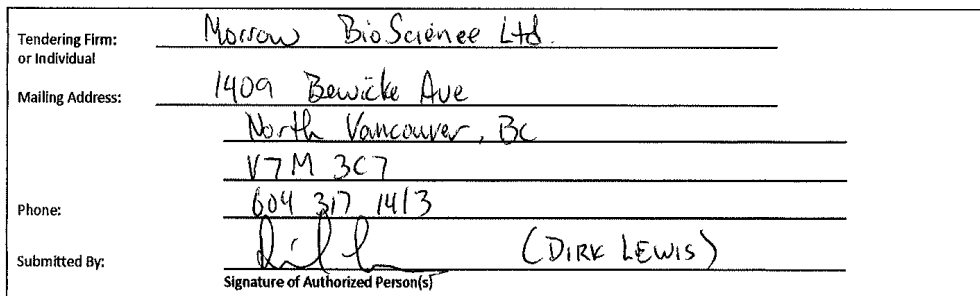 Tendering Firm: Morrow BioScience Ltd.
or Individual
Mailing Address: 1409 Bewicke Ave
North Vancouver, BC
V7M 3C7
Phone: 604 317 1413
Submitted By: (DIRK LEWIS)
Signature of Authorized Person(s)